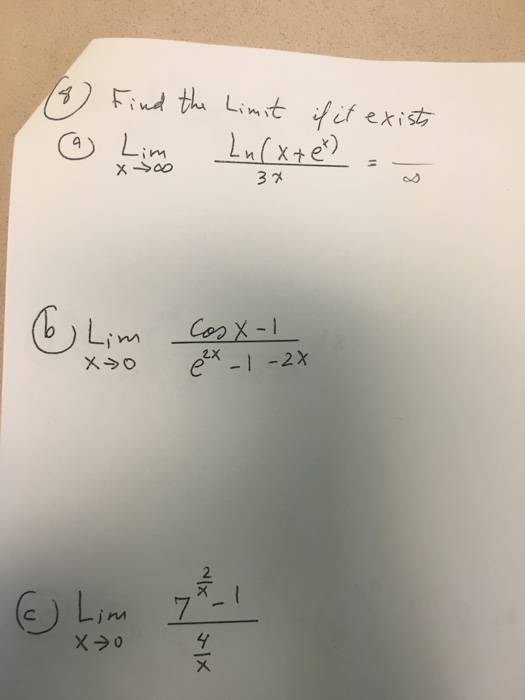 ⑧ Find the Limit if it exists
ⓐ Lim x→∞ Ln(x+eˣ) / 3x = — / ∞
ⓑ Lim x→0 Cos x - 1 / e^{2x} - 1 - 2x
ⓒ Lim x→0 7^{2/x} - 1 / 4/x